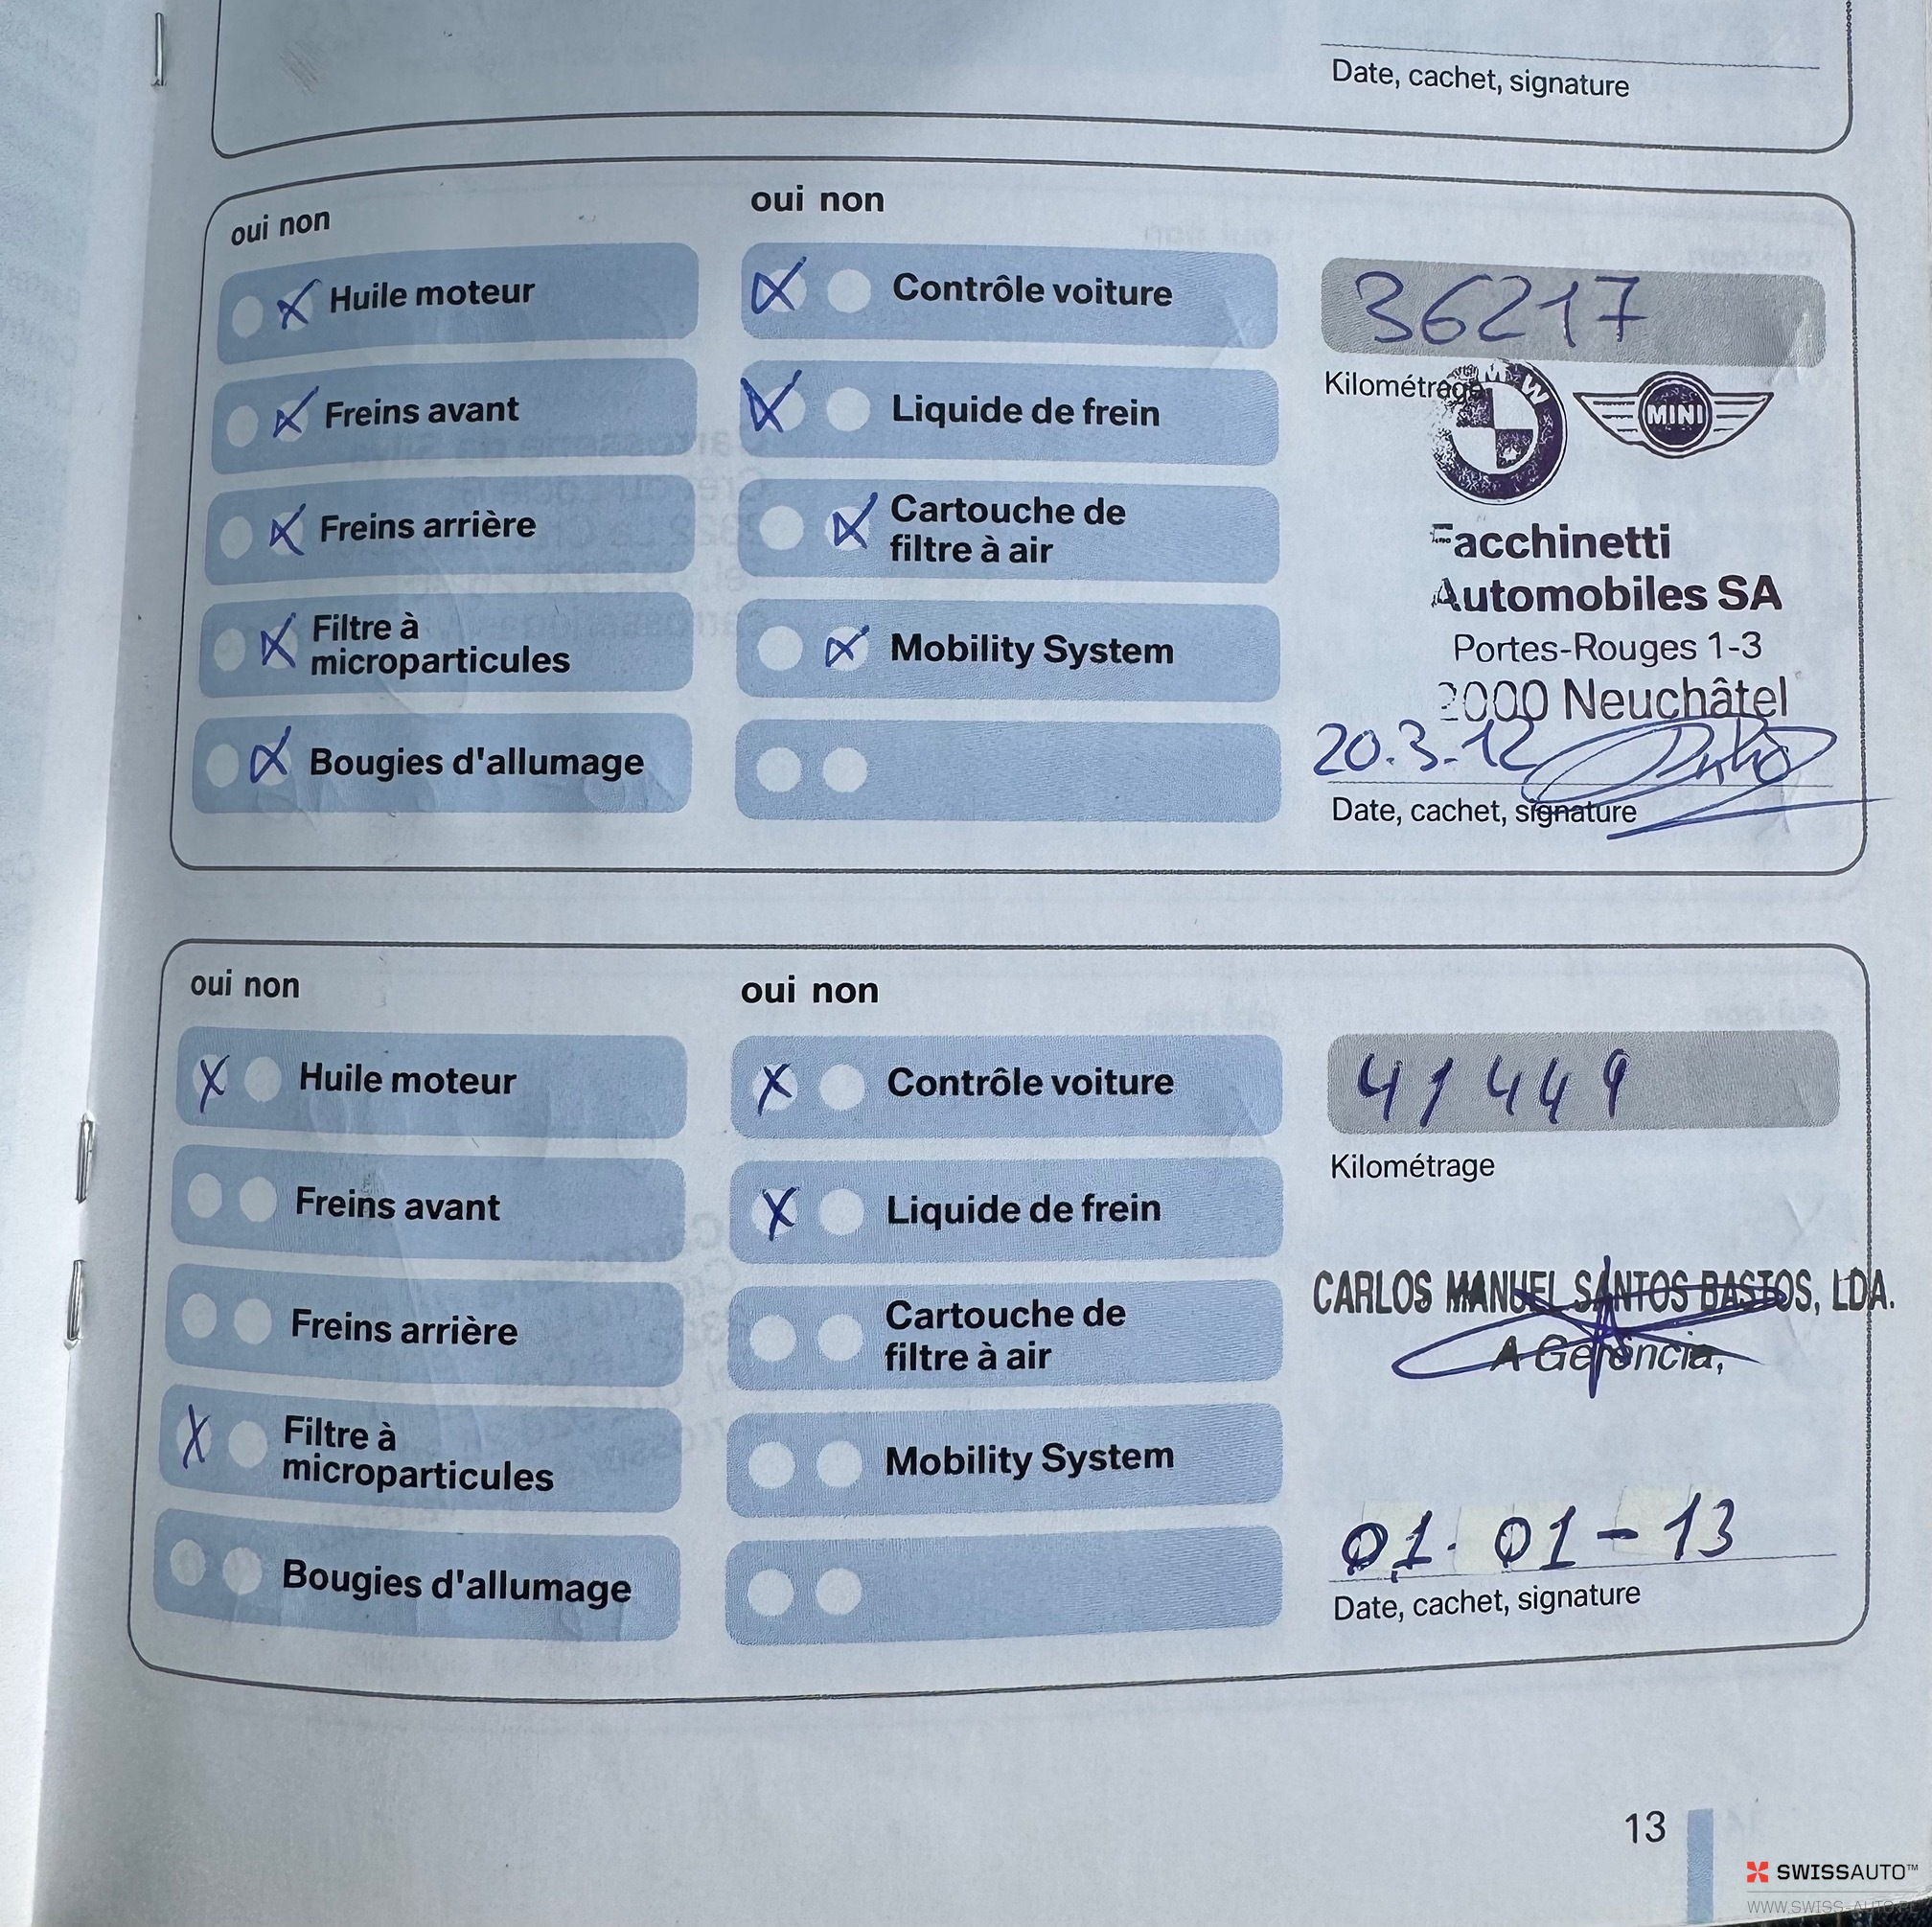 Date, cachet, signature
oui non
oui non
Huile moteur
Contrôle voiture
36217
Freins avant
Liquide de frein
Kilométrage
BMW
MINI
Freins arrière
Cartouche de
filtre à air
Facchinetti
Automobiles SA
Filtre à
microparticules
Mobility System
Portes-Rouges 1-3
2000 Neuchâtel
Bougies d'allumage
20.3.12
Date, cachet, signature
oui non
oui non
Huile moteur
Contrôle voiture
41449
Kilométrage
Freins avant
Liquide de frein
CARLOS MANUEL SANTOS BASTOS, LDA.
A Gerência,
Freins arrière
Cartouche de
filtre à air
Filtre à
microparticules
Mobility System
01.01-13
Bougies d'allumage
Date, cachet, signature
13
SWISSAUTO™
WWW.SWISS-AUTO.PL